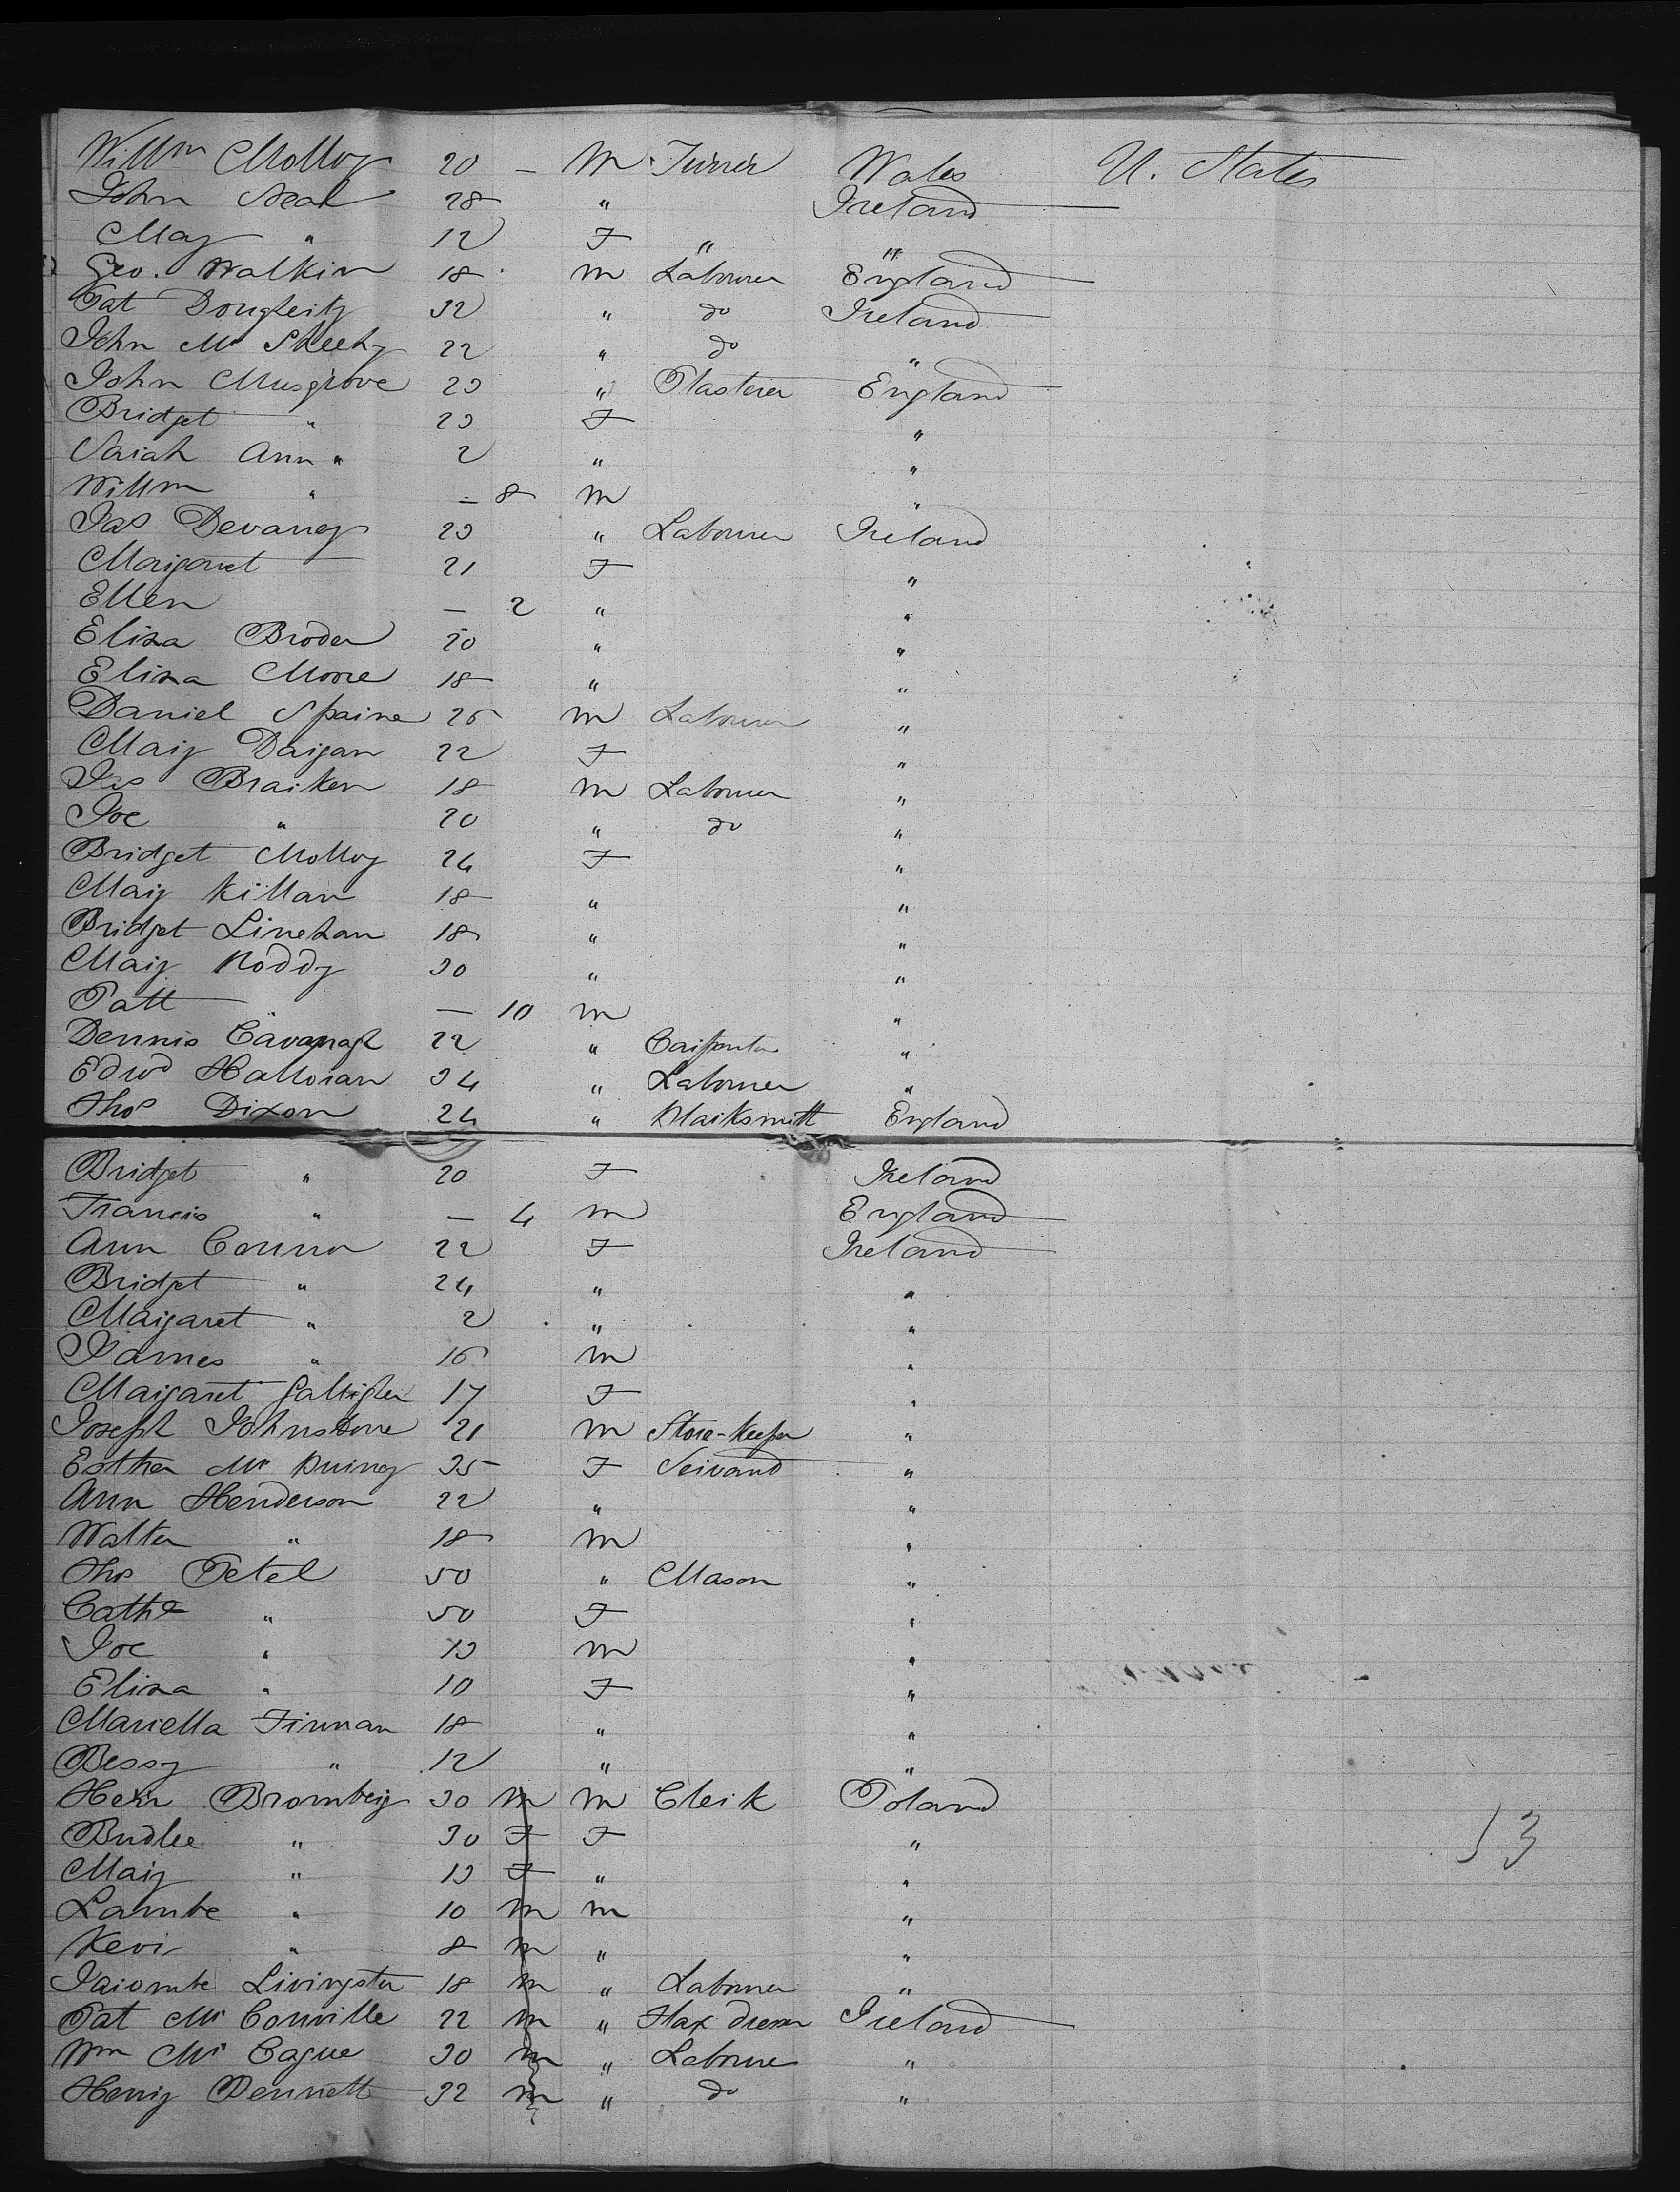 Willm Molloy 20 – M Turner Wales U. States
John Neal 28 " Ireland
Mary " 12 F " "
Geo. Walkin 18 M Labourer England
Pat Dougherty 32 " do Ireland
John Mc Sheehy 22 " do "
John Musgrove 23 " Plasterer England
Bridget " 23 F "
Sarah Ann " 2 " "
Willm " – 8 M "
Jas Devaney 23 " Labourer Ireland
Margaret 21 F "
Ellen – 2 " "
Eliza Broder 20 " "
Eliza Moore 18 " "
Daniel Spaine 26 M Labourer "
Mary Dargan 22 F "
Jas Bracken 18 M Labourer "
Joe " 20 " do "
Bridget Molloy 24 F "
Mary Killan 18 " "
Bridget Linehan 18 " "
Mary Roddy 30 " "
Patt – 10 M "
Dennis Cavanagh 22 " Carpenter "
Edwd Halloran 34 " Labourer "
Thos Dixon 24 " Blacksmith England
Bridget " 20 F Ireland
Francis " – 4 M England
Ann Connor 22 F Ireland
Bridget " 24 " "
Margaret " 2 " "
James " 16 M "
Margaret Galligher 17 F "
Joseph Johnstone 21 M Store-Keeper "
Esther Mc 35 F Servand "
Ann Henderson 22 " "
Walter " 18 M "
Thos Petel 50 " Mason "
Cathe " 50 F "
Joe " 13 M "
Eliza " 10 F "
Mariella Finnan 18 " "
Bessy " 12 " "
Herr Bromberg 30 M M Clerk Poland
Budlee " 30 F F "
Mary " 13 F " "
Lambe " 10 M M "
Kevi " 8 M " "
Jacombe Livingster 18 M " Labourer "
Pat Mc Conville 22 M " Flax dresser Ireland
Wm Mc Cague 30 M " Labourer "
Henry Dennett 32 M " do "
53